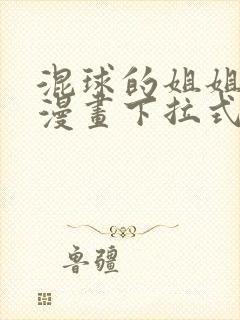 混球的姐姐
漫畫下拉式
鲁疆